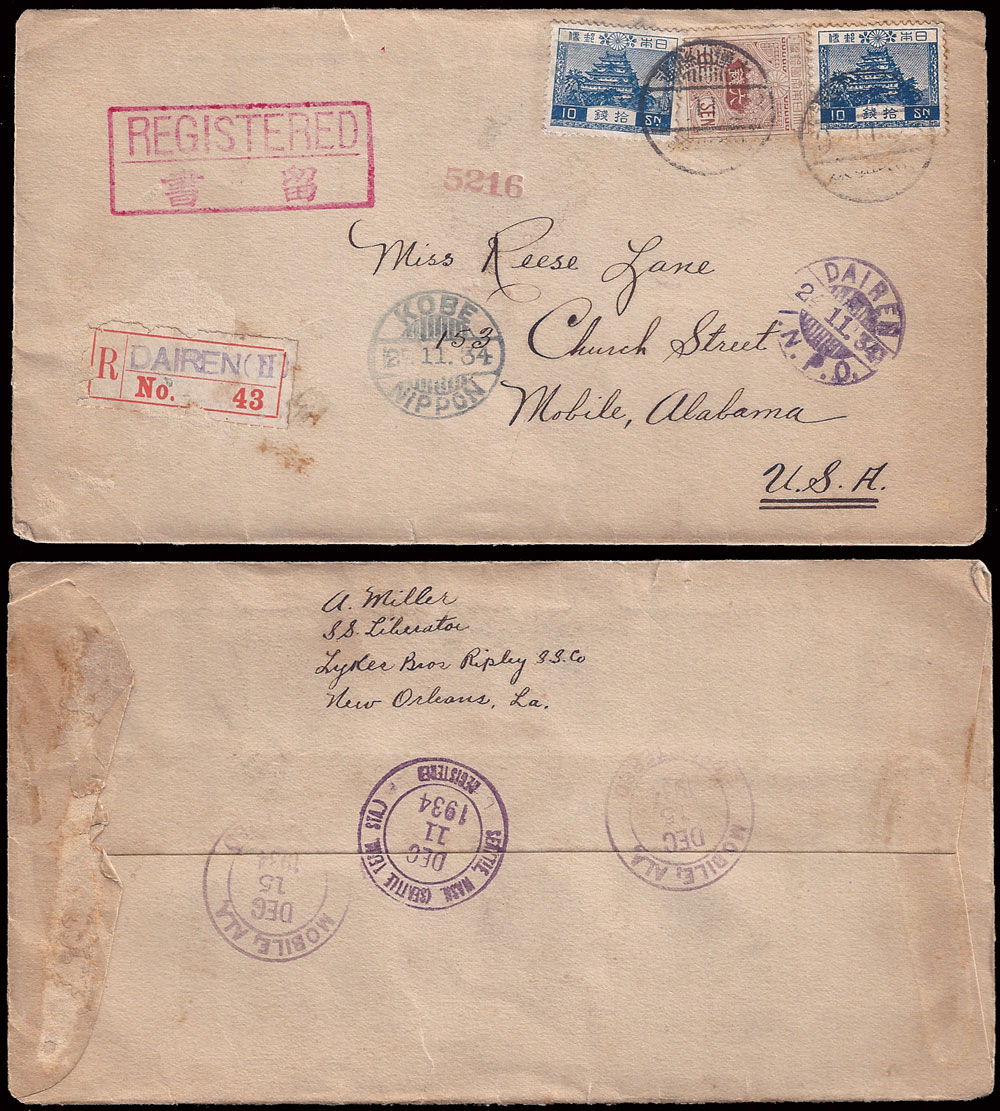 日本郵便
10 拾銭 SN
1 SEN
日本郵便
10 拾銭 SN
REGISTERED
書 留
5216
Miss Reese Lane
153 Church Street
Mobile, Alabama
U.S.A.
DAIREN
11. 34
I. N. P. O.
KOBE
11. 34
NIPPON
R DAIREN (II)
No. 43
A. Miller
SS. Liberator
Lykes Bros Ripley S.S. Co
New Orleans, La.
SEATTLE, WASH. (SEATTLE TERML STA.)
REGISTERED
DEC
11
1934
MOBILE, ALA
DEC
15
1934
MOBILE, ALA
DEC
15
1934